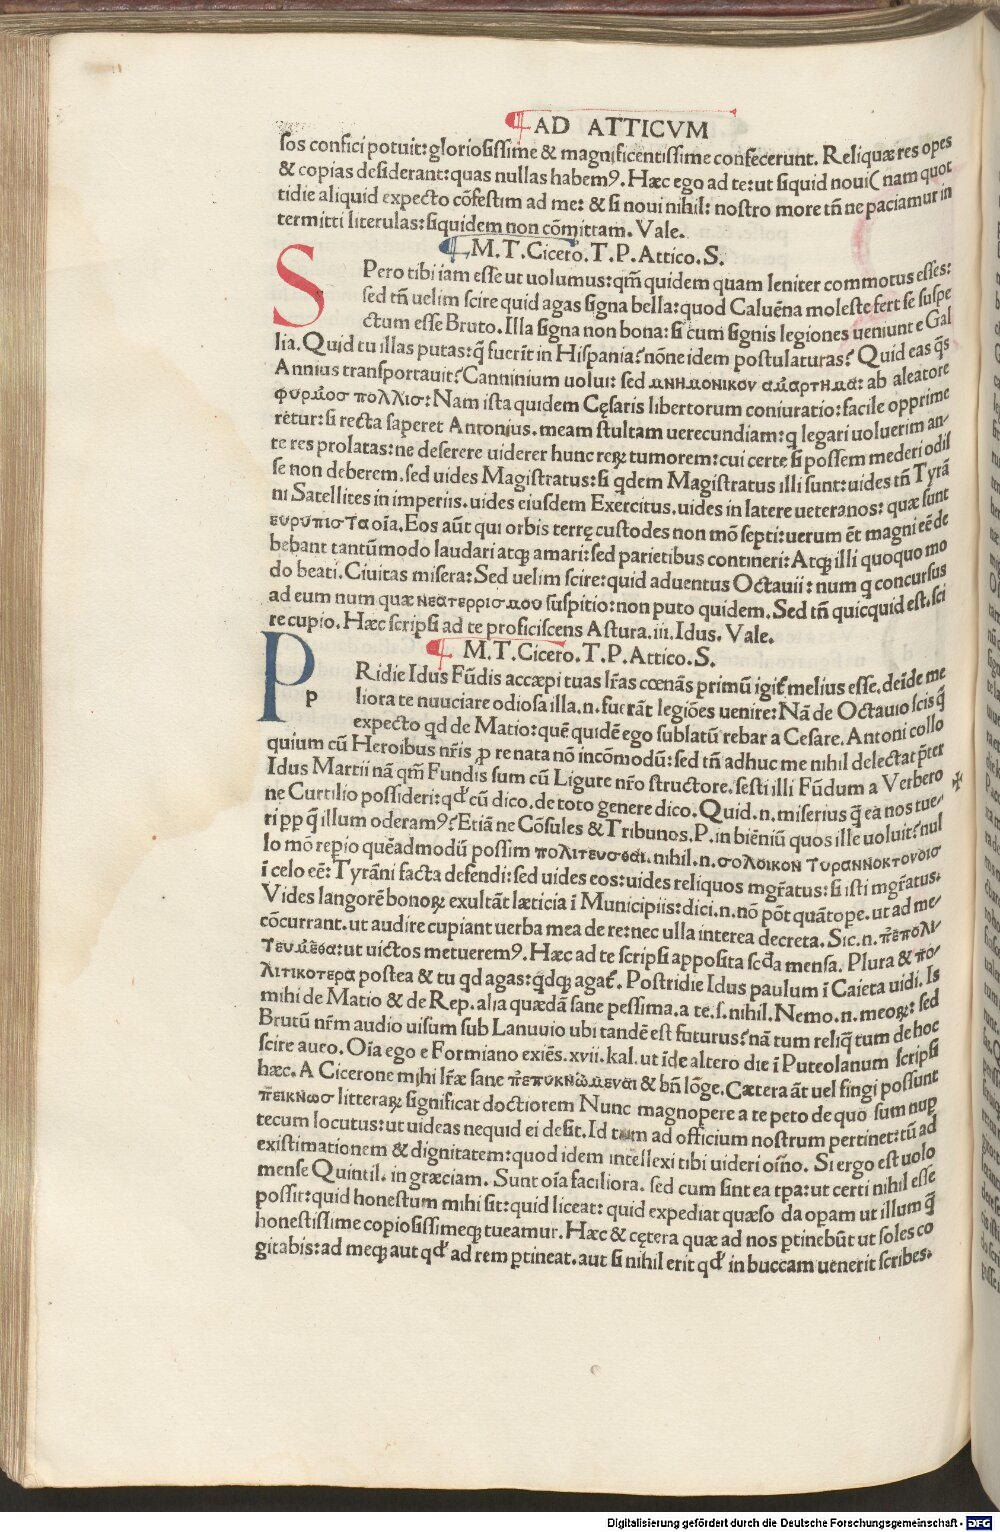 AD ATTICVM
sos confici potuit: gloriosissime & magnificentissime confecerunt. Reliquæ res opes
& copias desiderant: quas nullas habemꝰ. Hæc ego ad te: ut siquid noui( nam quot
tidie aliquid expecto cōfestim ad me: & si noui nihil: nostro more tñ ne paciamur in
termitti literulas: siquidem non cōmittam. Vale.
M.T.Cicero.T.P.Attico.S.
S Pero tibi iam esse ut uolumus: qm̄ quidem quam leniter commotus esses:
sed tñ uelim scire quid agas signa bella: quod Caluēna moleste fert se suspe
ctum esse Bruto. Illa signa non bona: si cum signis legiones ueniunt e Gal
lia. Quid tu illas putas: q̄ fuerīt in Hispania? nōne idem postulaturas? Quid eas q̄s
Annius transportauit? Canninium uolui: sed μνημονικον αμαρτημα: ab aleatore
φυρμοσ πολλισ: Nam ista quidem Cęsaris libertorum coniuratio: facile opprime
rētur: si recta saperet Antonius. meam stultam uerecundiam: q legari uoluerim an-
te res prolatas: ne deserere uiderer hunc reꝝ tumorem: cui certe si possem mederi odis
se non deberem. sed uides Magistratus: si qdem Magistratus illi sunt: uides tñ Tyrā
ni Satellites in imperiis. uides eiusdem Exercitus. uides in latere ueteranos: quæ sunt
ευρυπιστα oīa. Eos aūt qui orbis terrę custodes non mō septi: uerum ēt magni eē de
bebant tantūmodo laudari atqꝫ amari: sed parietibus contineri: Atqꝫ illi quoquo mo
do beati. Ciuitas misera: Sed uelim scire: quid aduentus Octauii: num q concursus
ad eum num quæ νεατερρισμου suspitio: non puto quidem. Sed tñ quicquid est. sci
re cupio. Hæc scripsi ad te proficiscens Astura. iii. Idus. Vale.
M.T.Cicero.T.P.Attico.S.
P p Ridie Idus Fūdis accæpi tuas lr̄as cœnās primū igit̄ melius esse. deīde me
liora te nuuciare odiosa illa. n. fuerāt legiōes uenire: Nā de Octauio scis q̄
expecto qd de Matio: quē quidē ego sublatū rebar a Cesare. Antoni collo
quium cū Heroibus nr̄is ꝓ re nata nō incōmodū: sed tñ adhuc me nihil delectat p̄ter
Idus Martii nā qm̄ Fundis sum cū Ligure nr̄o structore. sesti illi Fūdum a Verbero
ne Curtilio possideri: qd̄ cū dico. de toto genere dico. Quid. n. miserius q̄ ea nos tue-
ri ꝑp q̄ illum oderamꝰ? Etiā ne Cōsules & Tribunos. P. in biēniū quos ille uoluit? nul
lo mō repio quēadmodū possim πολιτευσθαι. nihil. n. σολοικον τυραννοκτονοισ
ī celo eē: Tyrāni facta defendi: sed uides eos: uides reliquos mgr̄atus: si isti mgr̄atus.
Vides langorē bonoꝝ exultāt læticia ī Municipiis: dici. n. nō pōt quātope. ut ad me-
cōcurrant. ut audire cupiant uerba mea de re: nec ulla interea decreta. Sic. n. πεπολι-
τευμεθα: ut uictos metueremꝰ. Hæc ad te scripsi apposita scd̄a mensa. Plura & πο-
λιτικοτερα postea & tu qd agas: qdqꝫ agat̄. Postridie Idus paulum ī Caieta uidi. Is
mihi de Matio & de Rep. alia quædā sane pessima. a te. s. nihil. Nemo. n. meoꝝ: sed
Brutū nr̄m audio uisum sub Lanuuio ubi tandē est futurus? nā tum reliq̄ tum de hoc
scire aueo. Oīa ego e Formiano exiēs. xvii. kal. ut īde altero die ī Puteolanum scripsi
hæc. A Cicerone mihi lr̄æ sane πεπυκνωμεναι & bñ lōge. Cætera āt uel fingi possunt
πεικνωσ litteraꝝ significat doctiorem Nunc magnopere a te peto de quo sum nuꝑ
tecum locutus: ut uideas nequid ei desit. Id tum ad officium nostrum pertinet: tū ad
existimationem & dignitatem: quod idem intellexi tibi uideri oīno. Si ergo est uolo
mense Quintil. in græciam. Sunt oīa faciliora. sed cum sint ea tp̄a: ut certi nihil esse
possit: quid honestum mihi sit: quid liceat: quid expediat quæso da opam ut illum q̄
honestissime copiosissimeqꝫ tueamur. Hæc & cętera quæ ad nos ꝑtinebūt ut soles co
gitabis: ad meqꝫ aut qd̄ ad rem ꝑtineat. aut si nihil erit qd̄ in buccam uenerit scribes.
Digitalisierung gefördert durch die Deutsche Forschungsgemeinschaft - DFG